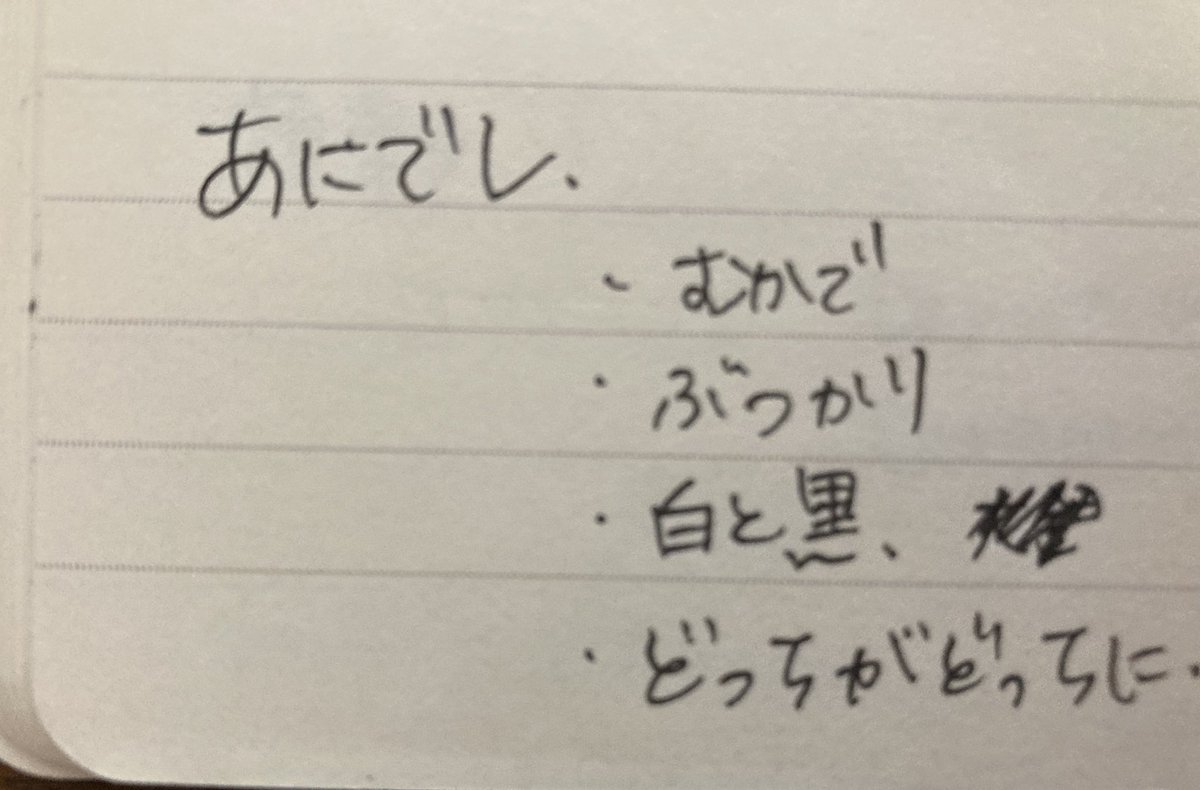 あにでし.
・むかで
・ぶつかり
・白と黒、
・どっちがどっちに.